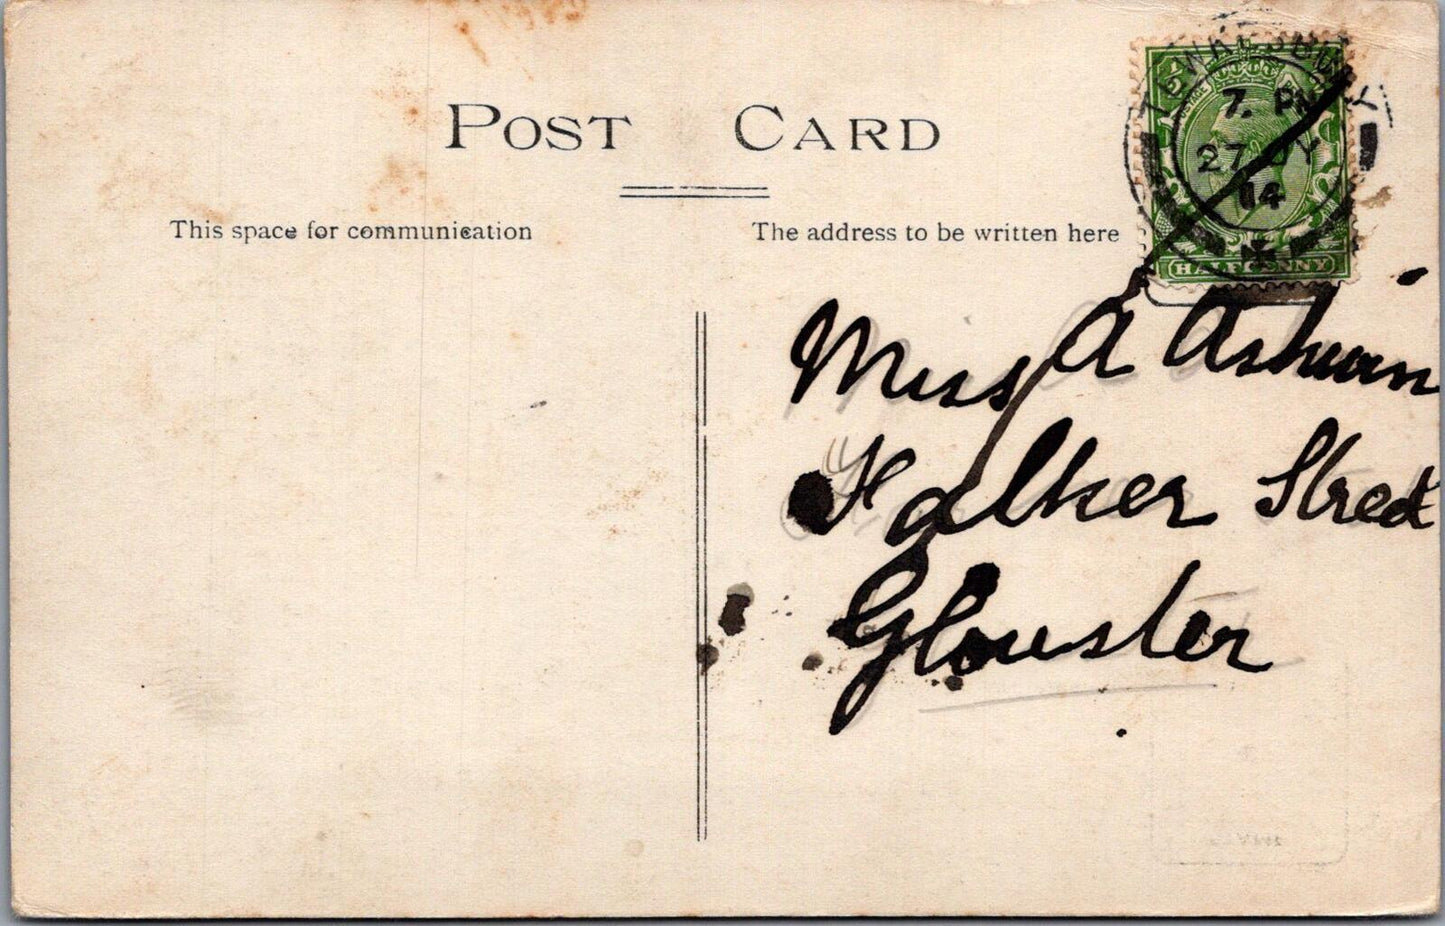 POST CARD
This space for communication
The address to be written here
TEWKESBURY
7. PM
27
14
HALFPENNY
Miss A Ashwin
Falker Street
Glouster